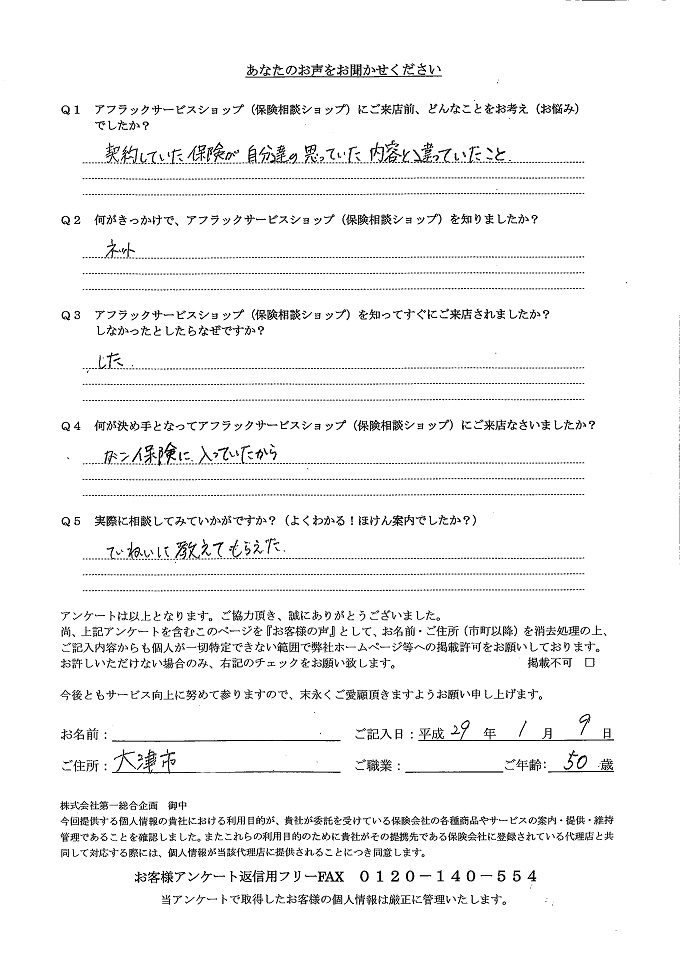 あなたのお声をお聞かせください
Q1 アフラックサービスショップ(保険相談ショップ)にご来店前、どんなことをお考え(お悩み)
でしたか?
契約していた保険が自分達の思っていた内容と違っていたこと.
Q2 何がきっかけで、アフラックサービスショップ(保険相談ショップ)を知りましたか?
ネット
Q3 アフラックサービスショップ(保険相談ショップ)を知ってすぐにご来店されましたか?
しなかったとしたらなぜですか?
した.
Q4 何が決め手となってアフラックサービスショップ(保険相談ショップ)にご来店なさいましたか?
ガン保険に入っていたから
Q5 実際に相談してみていかがですか?(よくわかる!ほけん案内でしたか?)
ていねいに教えてもらえた.
アンケートは以上となります。ご協力頂き、誠にありがとうございました。
尚、上記アンケートを含むこのページを『お客様の声』として、お名前・ご住所(市町以降)を消去処理の上、
ご記入内容からも個人が一切特定できない範囲で弊社ホームページ等への掲載許可をお願いしております。
お許しいただけない場合のみ、右記のチェックをお願い致します。 掲載不可 □
今後ともサービス向上に努めて参りますので、末永くご愛顧頂きますようお願い申し上げます。
お名前: ご記入日:平成 29 年 1 月 9 日
ご住所: 大津市 ご職業: ご年齢: 50 歳
株式会社第一総合企画 御中
今回提供する個人情報の貴社における利用目的が、貴社が委託を受けている保険会社の各種商品やサービスの案内・提供・維持
管理であることを確認しました。またこれらの利用目的のために貴社がその提携先である保険会社に登録されている代理店と共
同して対応する際には、個人情報が当該代理店に提供されることにつき同意します。
お客様アンケート返信用フリーFAX 0120-140-554
当アンケートで取得したお客様の個人情報は厳正に管理いたします。